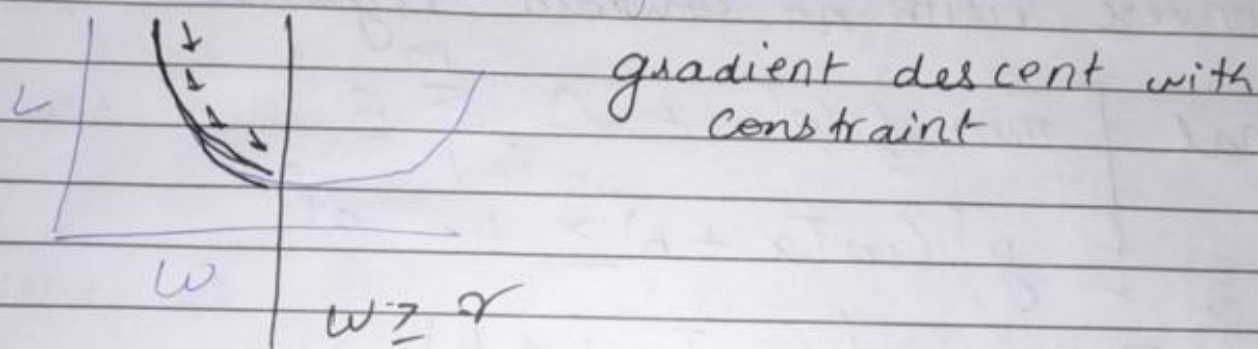 gradient descent with
constraint
L
w
w ≥ r